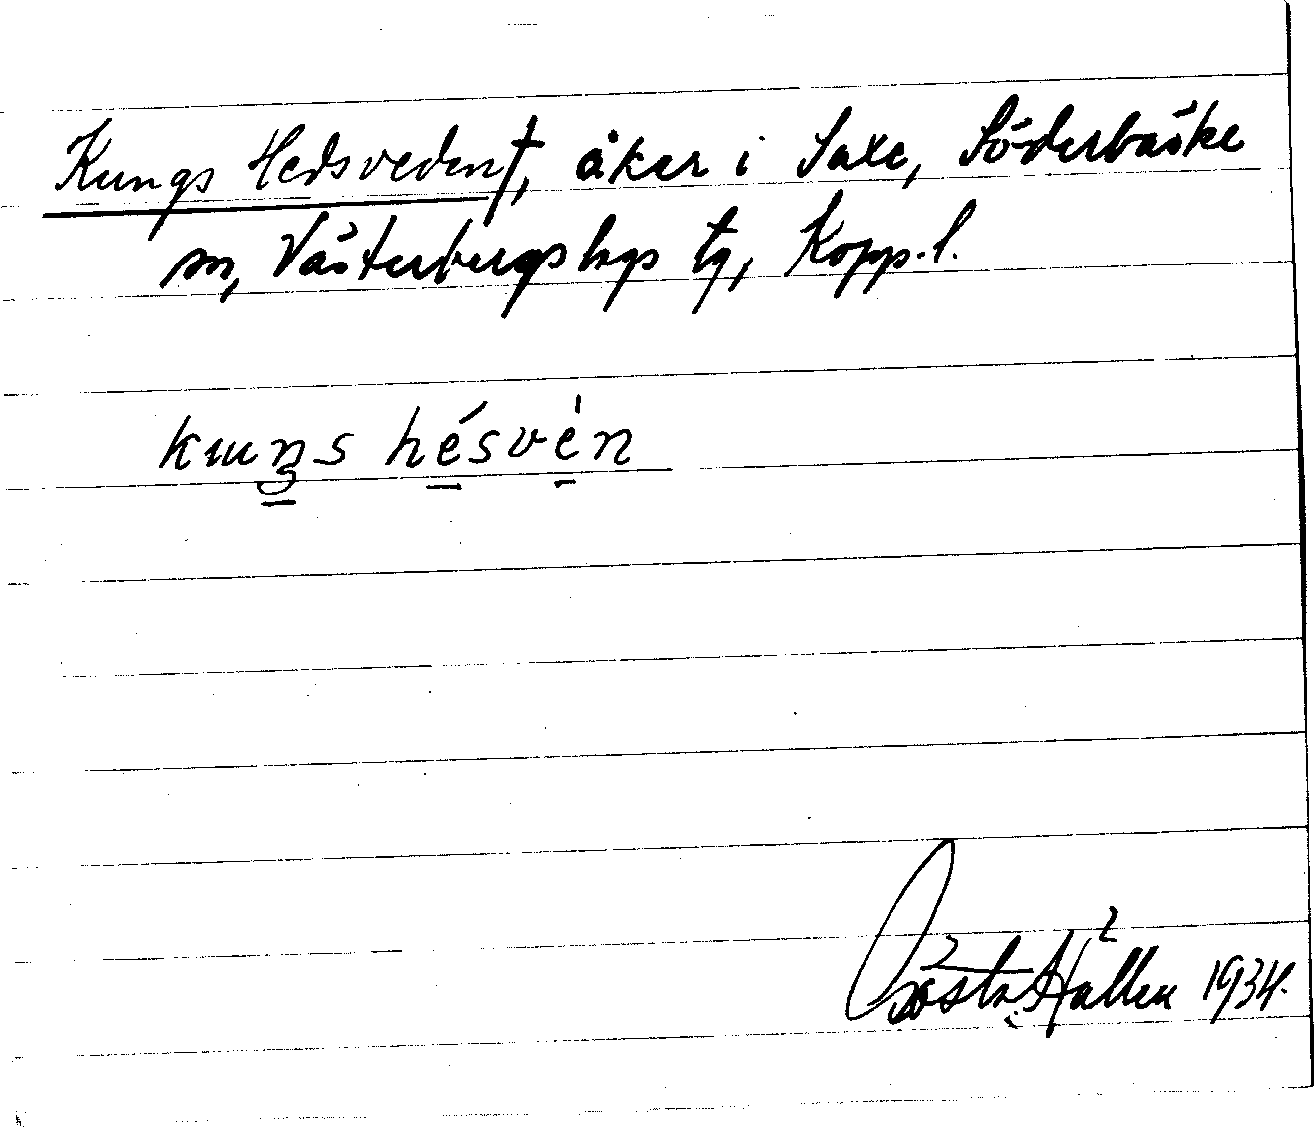 Kungs Hedsveden†, åker i Saxe, Söderbärke
sn, Västerbergslags tg, Kopp. l.
kuŋs hésvèn
Gösta Hållen 1934.